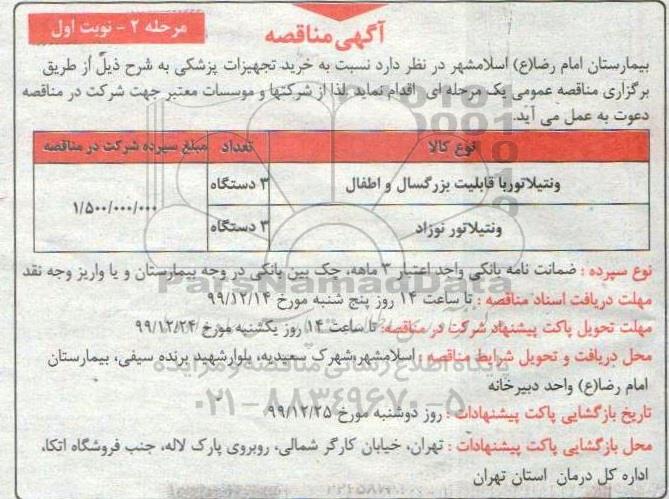 مرحله ۲ - نوبت اول
آگهی مناقصه
بیمارستان امام رضا(ع) اسلامشهر در نظر دارد نسبت به خرید تجهیزات پزشکی به شرح ذیل از طریق
برگزاری مناقصه عمومی یک مرحله ای اقدام نماید لذا از شرکتها و موسسات معتبر جهت شرکت در مناقصه
دعوت به عمل می آید.
نوع کالا تعداد مبلغ سپرده شرکت در مناقصه
ونتیلاتوربا قابلیت بزرگسال و اطفال ۳ دستگاه
۱/۵۰۰/۰۰۰/۰۰۰
ونتیلاتور نوزاد ۳ دستگاه
نوع سپرده : ضمانت نامه بانکی واجد اعتبار ۳ ماهه، چک بین بانکی در وجه بیمارستان و یا واریز وجه نقد
مهلت دریافت اسناد مناقصه : تا ساعت ۱۴ روز پنج شنبه مورخ ۹۹/۱۲/۱۴
مهلت تحویل پاکت پیشنهاد شرکت در مناقصه: تا ساعت ۱۴ روز یکشنبه مورخ ۹۹/۱۲/۲۴
محل دریافت و تحویل شرایط مناقصه : اسلامشهر،شهرک سعیدیه، بلوارشهید پرنده سیفی، بیمارستان
امام رضا(ع) واحد دبیرخانه
تاریخ بازگشایی پاکت پیشنهادات : روز دوشنبه مورخ ۹۹/۱۲/۲۵
محل بازگشایی پاکت پیشنهادات : تهران، خیابان کارگر شمالی، روبروی پارک لاله، جنب فروشگاه اتکا،
اداره کل درمان استان تهران
ParsNamadData
پایگاه اطلاع رسانی مناقصه و مزایده
۰۲۱-۸۸۳۴۹۶۷۰-۵